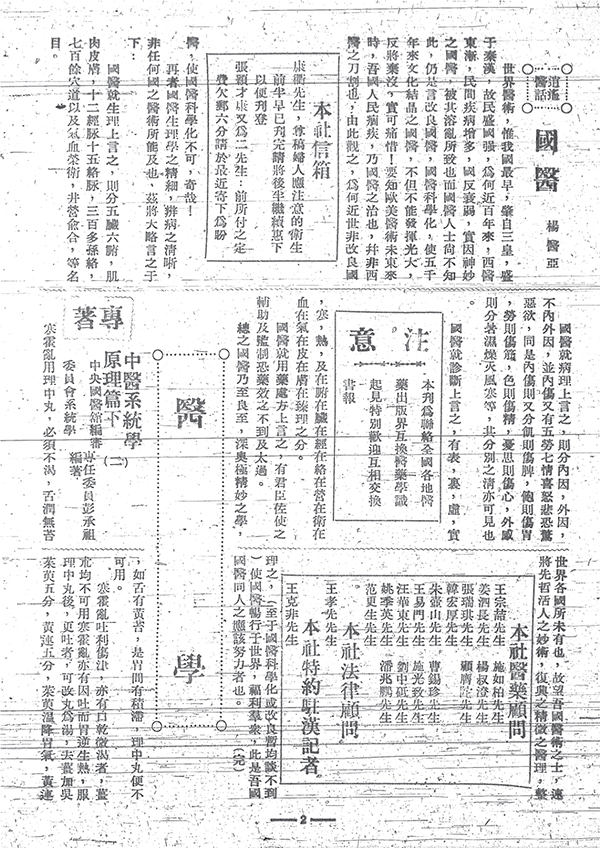 逍遙
醫話
國醫
楊醫亞
世界醫術，惟我國最早，肇自三皇，盛
于秦漢，故民盛國强，爲何近百年來，西醫
東漸，民間疾病增多，國反衰弱，實因神妙
之國醫，被其溷亂所致也而國醫人士尙不知
此，仍是言改良國醫，國醫科學化，使五千
年來文化結晶之國醫，不但不能發揮光大，
反將棄沒，實可痛惜！要知歐美醫術未東來
時，吾國人民病疾，乃國醫之治也，幷非西
醫之刀割也，由此觀之，爲何近世非改良國
本社信箱
康衢先生，尊稿婦人應注意的衛生
前半早已刊完請將後半繼續惠下
以便刋登
張穎才康又爲二先生：前所付之定
費欠郵六分請於最近寄下爲盼
醫，使國醫科學化不可，奇哉！
再者國醫生理學之精細，辨病之淸晰，
非任何國之醫術所能及也，茲將大略言之于
下：
國醫就生理上言之，則分五臟六腑，肌
肉皮膚，十二經脉十五絡脉，三百多孫絡，
七百餘穴道以及氣血榮衛，井營兪合，等名
目。
國醫就病理上言之，則分內因，外因，
不內外因，並內傷又有五勞七情喜怒悲恐驚
惡欲，同是內傷則又分飢則傷脾，飽則傷胃
，勞則傷筋，色則傷精，憂思則傷心，外感
則分著濕燥火風寒等，其分別之淸亦可見也
。
國醫就診斷上言之，有表，裏，虛，實
注意
本刋爲聯絡全國各地醫
藥出版界互換醫藥學識
起見特別歡迎互相交換
書報
，寒，熱，及在腑在臟在經在絡在營在衛在
血在氣在皮在膚在臻理之分。
國醫就用藥處方上言之，有君臣佐使之
輔助及搤制恐藥效之不到及太過。
總之國醫乃至良至，深奥極精妙之學，
世界各國所未有也，故望吾國醫術之士，速
將先哲活人之妙術，復興之精微之醫理，整
本社醫藥顧問
王宗喆先生
施如柏先生
姜泗長先生
楊叔澄先生
張瑞琪先生
韓宏厚先生
朱壺山先生
曹錫珍先生
王易門先生
施光致先生
汪華東先生
劉中砥先生
姚季英先生
潘兆鵬先生
范更生先生
本社法律顧問
王孝先先生
本社特約駐漢記者
王克非先生
理之，（至于國醫科學化或改良暫均談不到
）使國醫暢行于世界，福利羣衆，此是吾國
國醫同人之應該努力者也。（完）
醫學
專著
中醫系統學（二）
原理篇下
中央國醫館編審委員會系統學
專任委員彭承祖編著
寒霍亂用理中丸，必須不渴，舌潤無苔
，如舌有黄苔，是胃間有積滯，理中丸便不
可用。
寒霍亂吐利傷津，亦有口乾微渴者，薑
朮均不可用寒霍亂亦有因吐而胃逆生熱，服
理中丸後，更吐者，可改丸爲湯，去薑加吳
茱萸五分，黄連五分，茱萸溫降胃氣，黃連
2